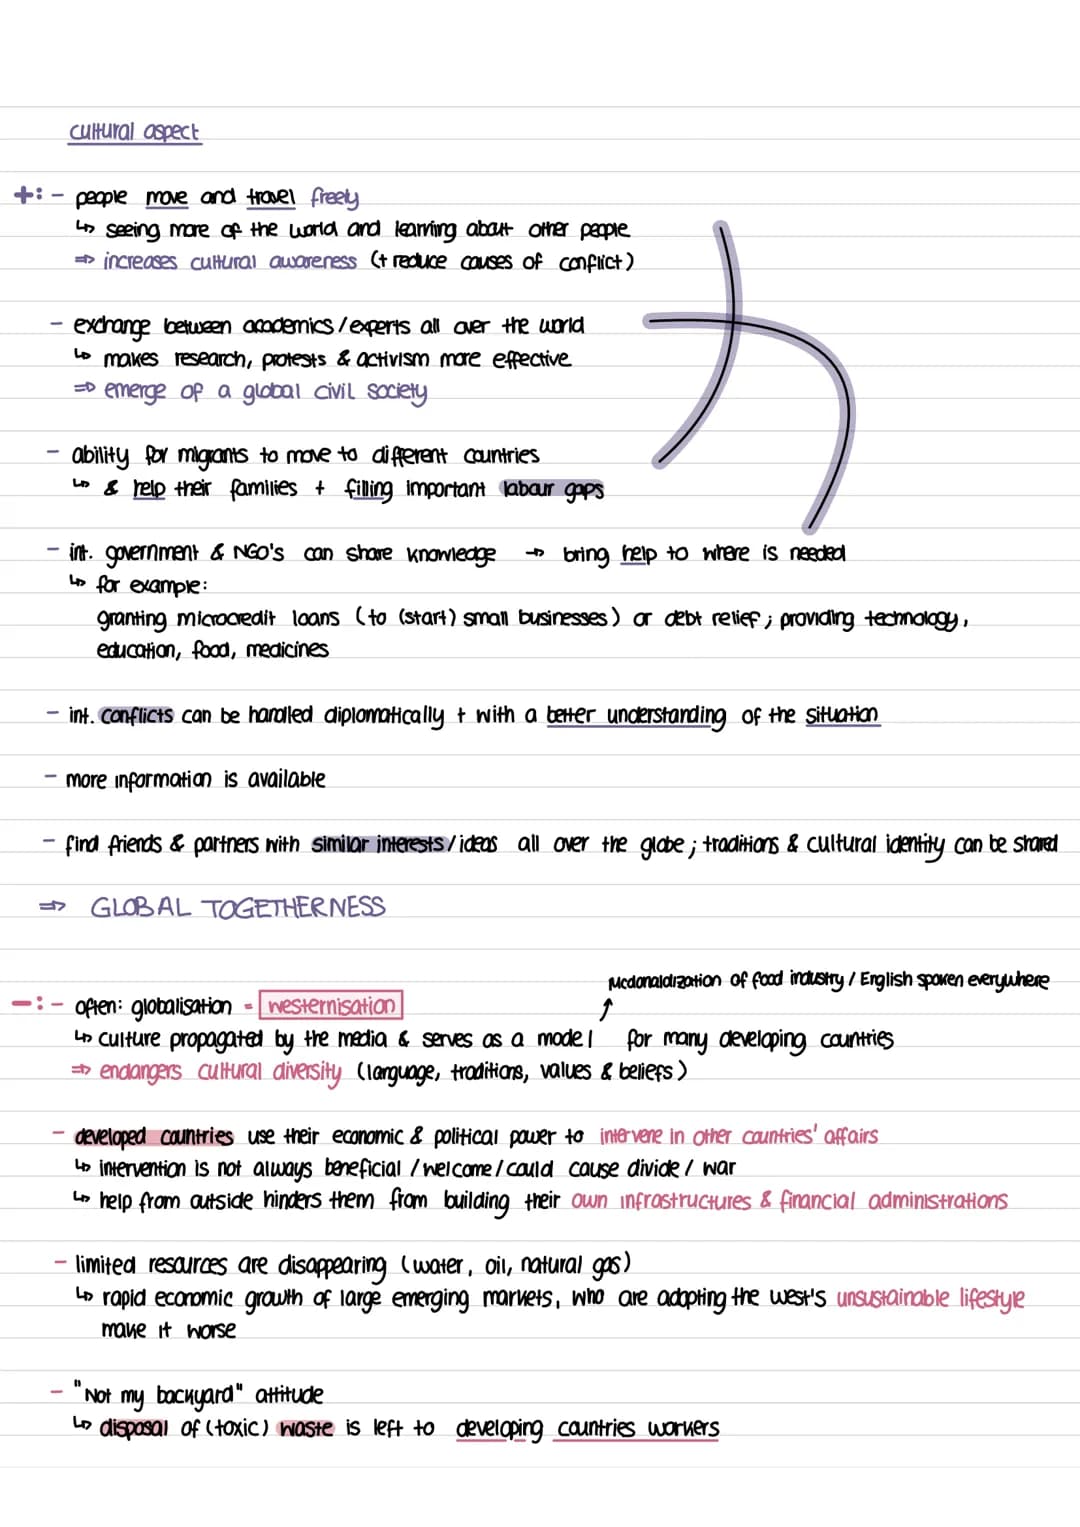 cultural aspect
+: - people move and travel freely
↳ seeing more of the world and learning about other people
⇒ increases cultural awareness (+ reduce causes of conflict)
- exchange between academics/experts all over the world
↳ makes research, protests & activism more effective
⇒ emerge of a global civil society
- ability for migrants to move to different countries
↳ & help their families + filling important labour gaps
- int. government & NGO's can share knowledge → bring help to where is needed
↳ for example:
granting microcredit loans (to (start) small businesses) or debt relief; providing technology,
education, food, medicines
- int. conflicts can be handled diplomatically + with a better understanding of the situation
- more information is available
- find friends & partners with similar interests/ideas all over the globe; traditions & cultural identity can be shared
⇒ GLOBAL TOGETHERNESS
Mcdonaldization of food industry / English spoken everywhere
-: - often: globalisation = westernisation
↳ culture propagated by the media & serves as a model for many developing countries
⇒ endangers cultural diversity (language, traditions, values & beliefs)
- developed countries use their economic & political power to intervene in other countries' affairs
↳ intervention is not always beneficial / welcome / could cause divide / war
↳ help from outside hinders them from building their own infrastructures & financial administrations
- limited resources are disappearing (water, oil, natural gas)
↳ rapid economic growth of large emerging markets, who are adopting the west's unsustainable lifestyle
make it worse
- "Not my backyard" attitude
↳ disposal of (toxic) waste is left to developing countries workers